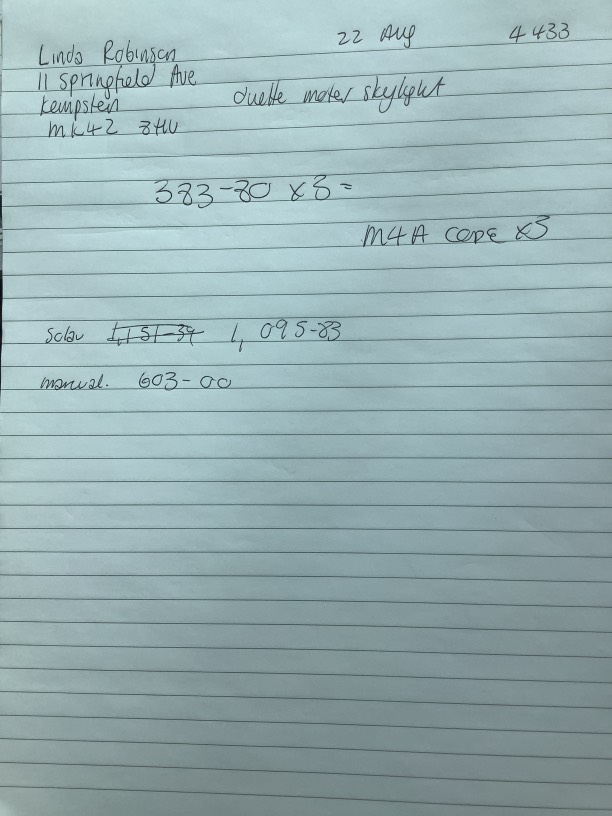 Linda Robinson 22 Aug 4433
11 Springfield Ave
Kempsten duette moter skylight
MK42
383-80 x3=
M4A CODE x3
Solar 1,151-39 1,095-83
manual. 603-00